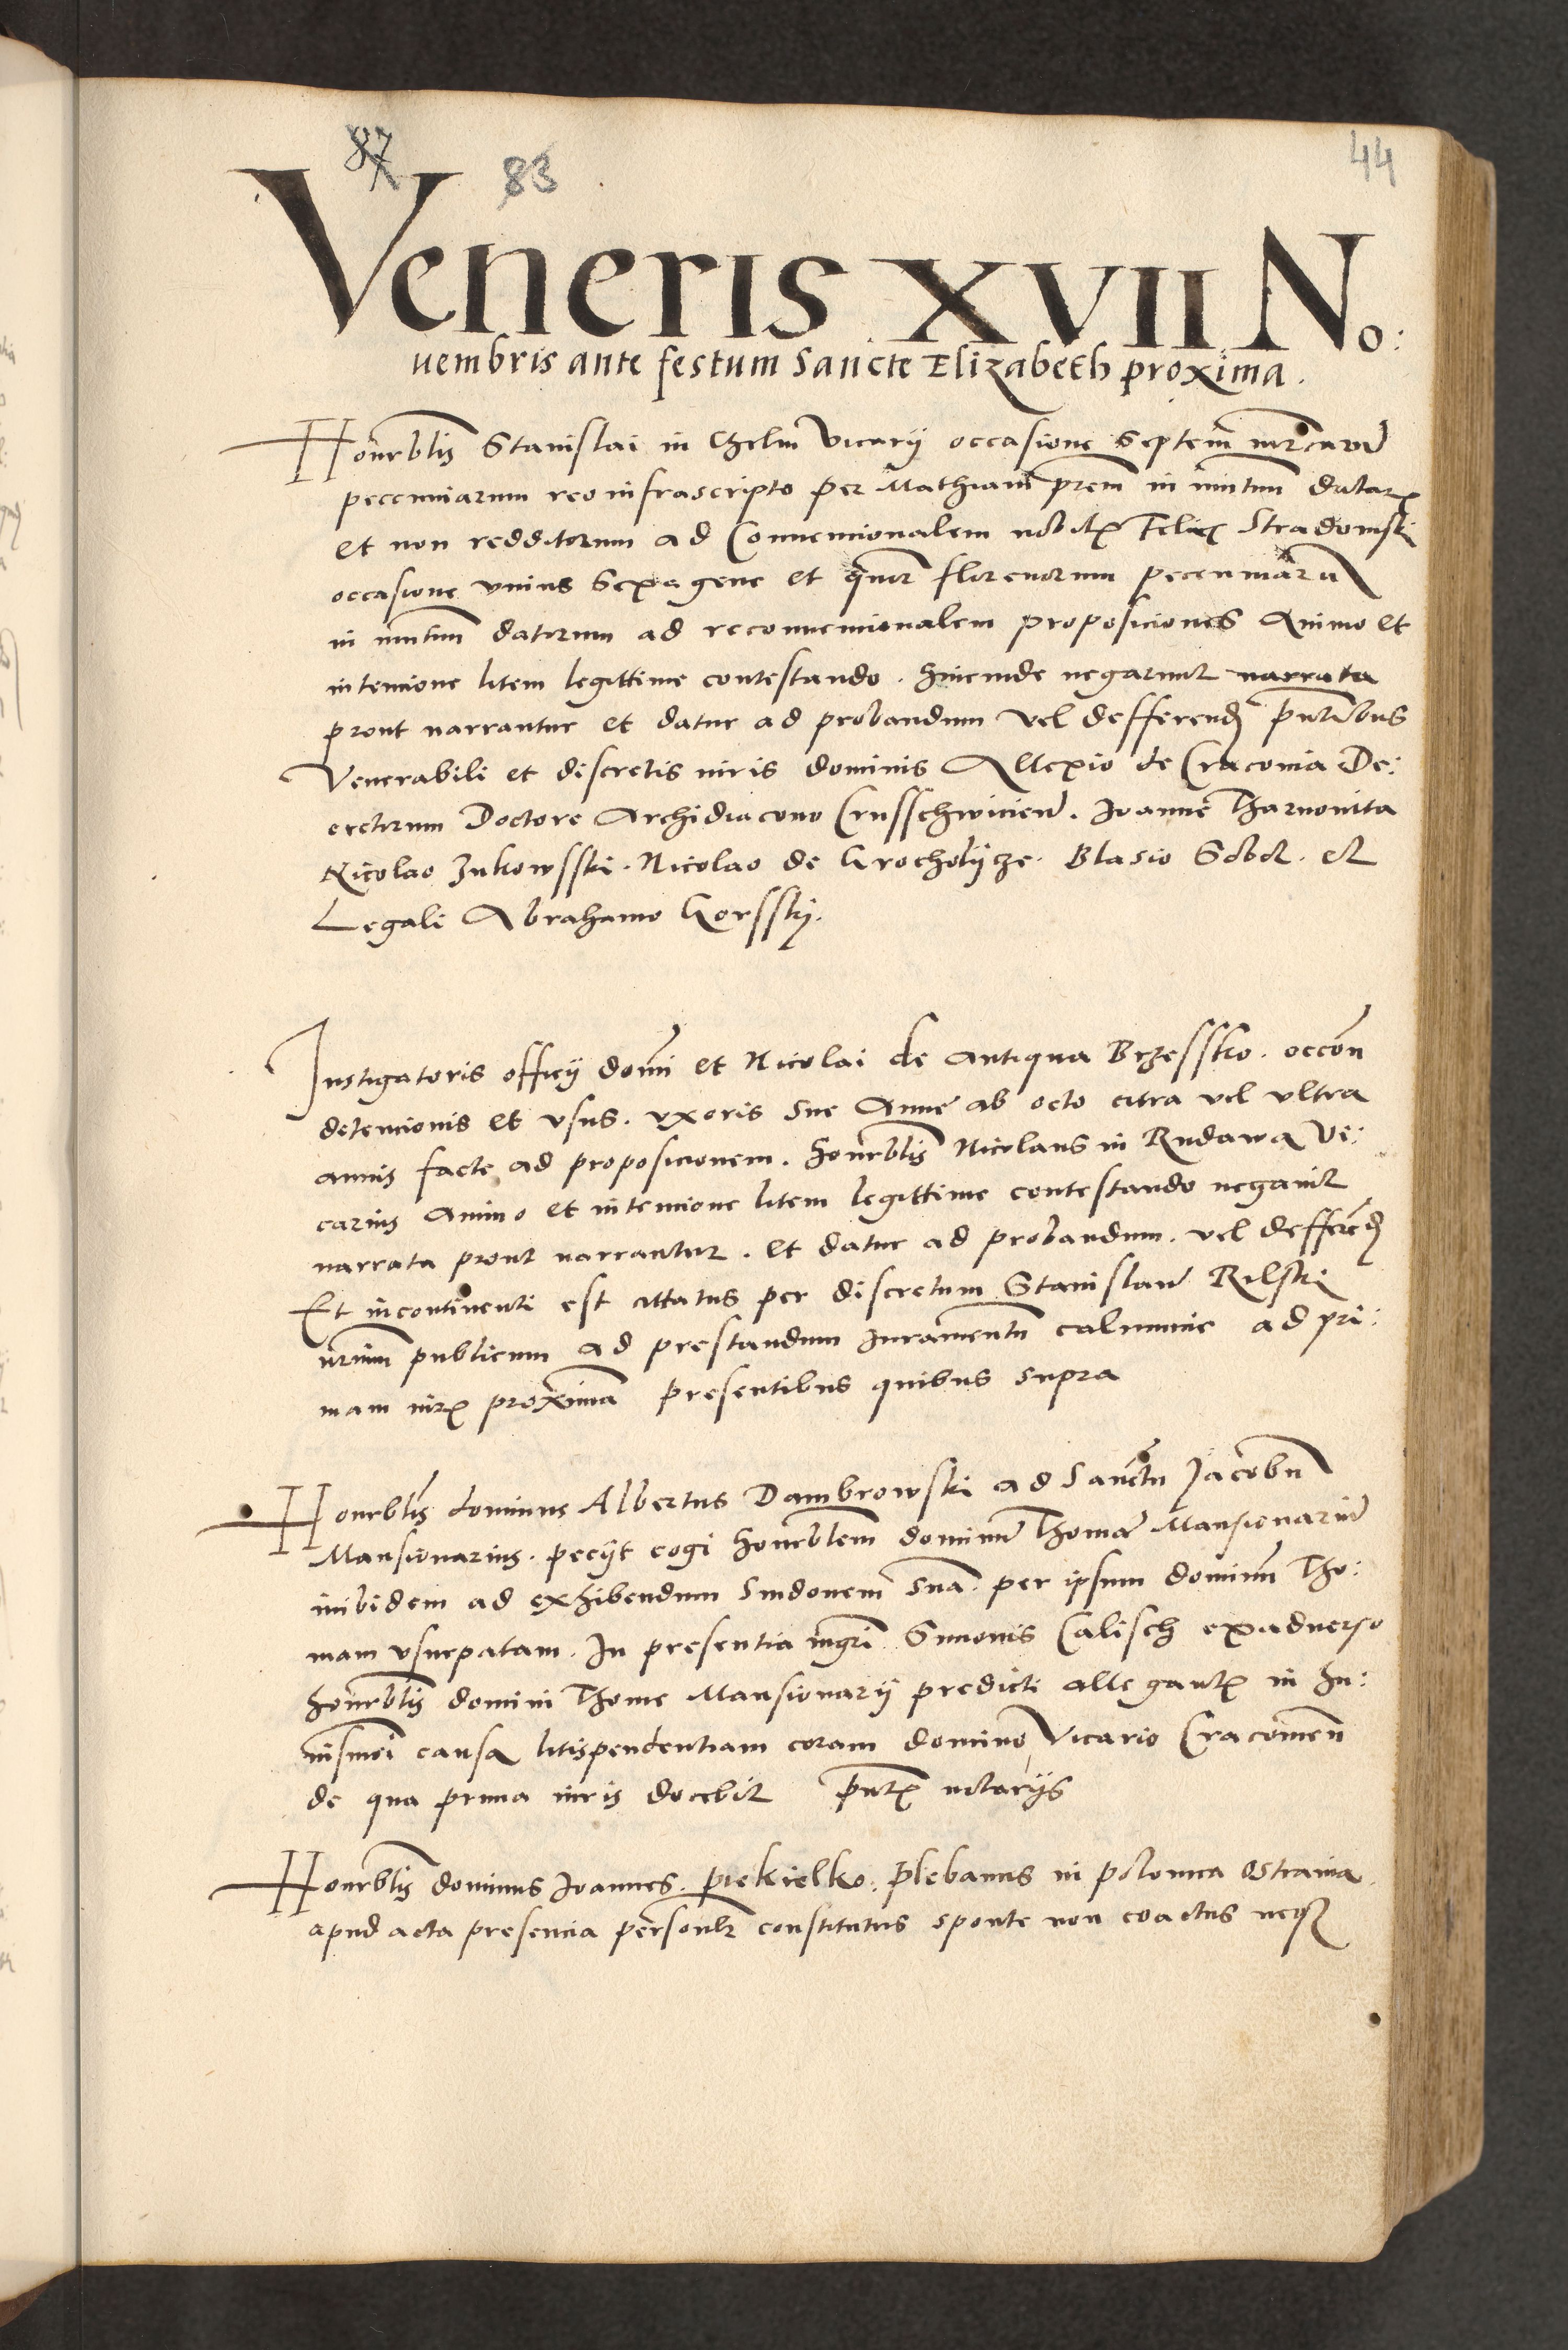 87 83 44
Veneris XVII No:
uembris ante festum Sancte Elizabeth proxima.
Honrblis Stanislai in Chelm Vicarij occasione Septem mrcarum
pecuniarum reo infrascripto per Mathiam prem in mutuum datarum
et non redditorum ad Conuencionalem nobilis Felicis Stradomski
occasione vnius Sexagene et qnor florenorum pecuniarum
in mutuum datorum ad reconuencionalem proposiciones Animo et
intencione litem legittime contestando. hincinde negarunt narrata
prout narrantur et datur ad probandum vel defferendum pntibus
Venerabili et discretis viris dominis Allexio de Cracouia De:
cretorum Doctore Archidiacono Crusschwicien. Joanne Tharnouita
Nicolao Zukowsski. Nicolao de Grocholijcze. Blasio Sobol. et
Legali Abrahamo Gorsskj.
Instigatoris officij domi et Nicolai de Antiqua Brzessko. occon
detencionis et vsus. vxoris sue Anne ab octo citra vel vltra
annis facte ad proposicionem. honrblis Nicolaus in Rudawa Vi:
carius Animo et intencione litem legittime contestando negauit
narrata prout narrantur. et datur ad probandum. vel defferend
Et incontinenti est cittatus per discretum Stanislaum Rilski
nrium publicum ad prestandum Iuramentum calumnie ad pri:
mam iuris proximam presentibus quibus supra
Honrblis dominus Albertus Dambrowski ad Sanctum Jacobum
Mansionarius. pecijt cogi honrblem dominum Thomam Mansionarium
inibidem ad exhibendum Sindonem suam. per ipsum dominum Tho:
mam vsurpatam. In presentia mgri Simonis Calisch exaduerso
honrblis domini Thome Mansionarij predicti allegantis in hu:
iusmoi causa litispendentiam coram domino Vicario Cracouien
de qua prima iuris docebit pntibus notarijs
Honrblis dominus Joannes. Piekielko. Plebanus in polonica Ostrauia.
apud acta presencia personlr constitutus sponte non coactus neque